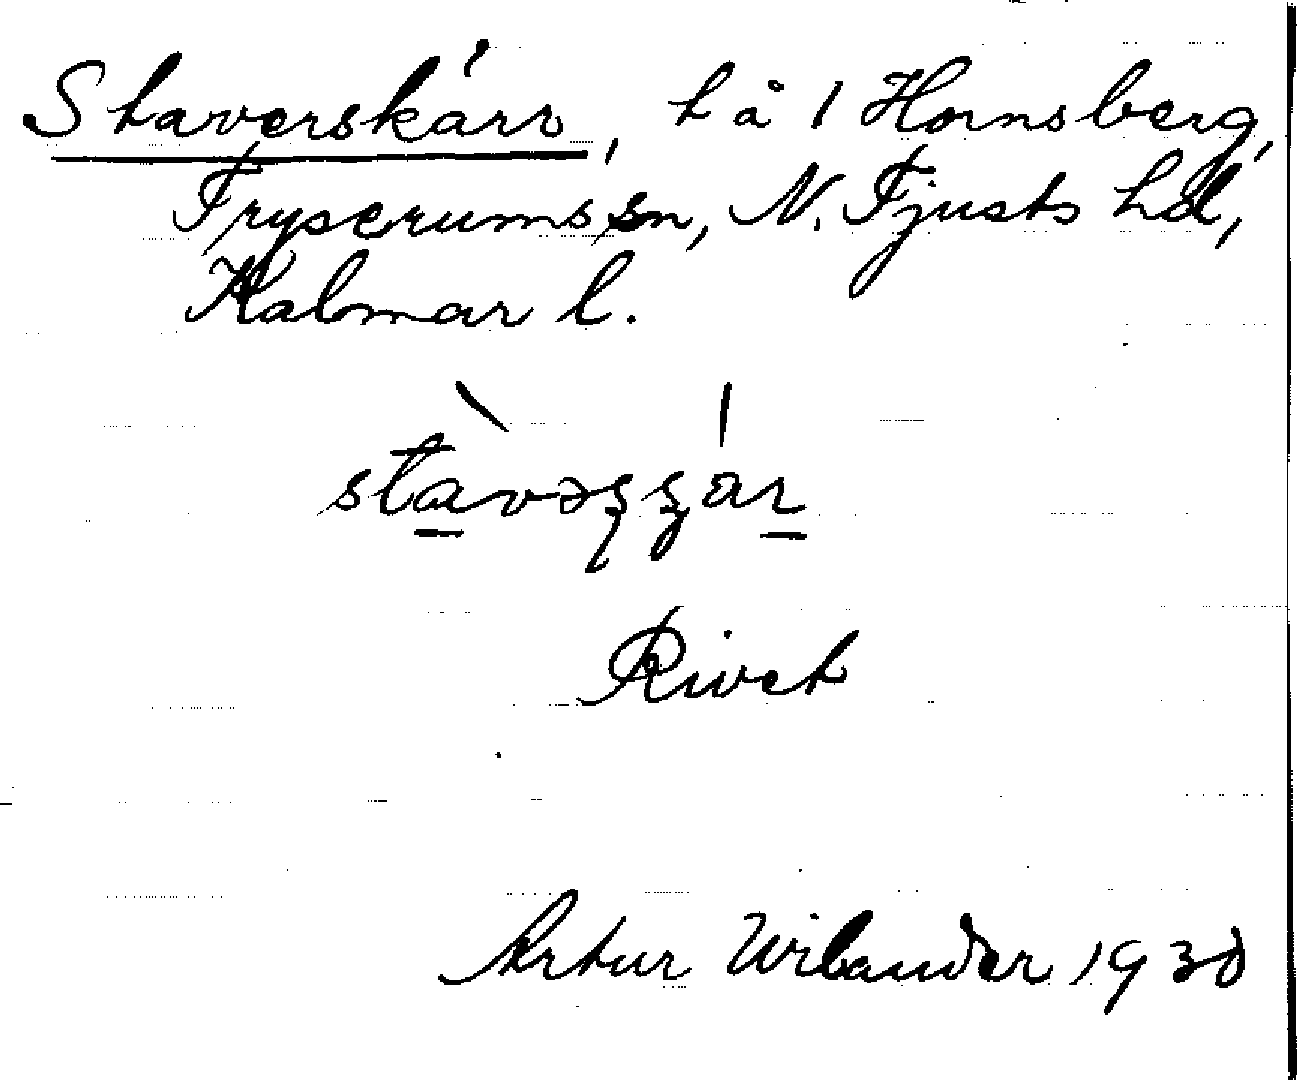 Staverskärr, tå / Hornsberg,
Tryserums sn, N. Tjusts hd,
Kalmar l.
Rivet
Artur Wilander 1930